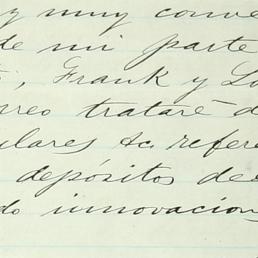 y muy conve
de mi parte
, Frank y Lo
rreo trataré d
ulares &c. refere
depósitos de
do innovacion